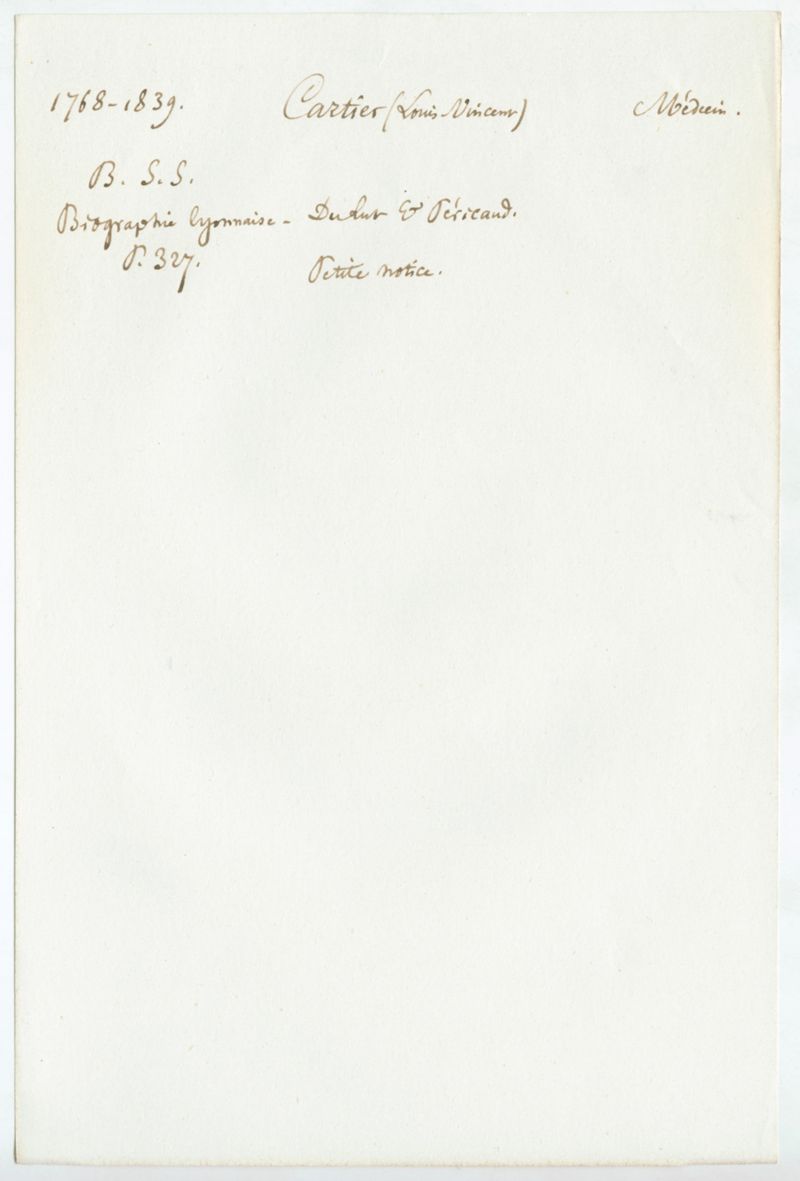 1768-1839. Cartier (Louis Vincent) Médecin.
B. S. S.
Biographie lyonnaise - Dulut & Péricaud.
P. 327. Petite notice.